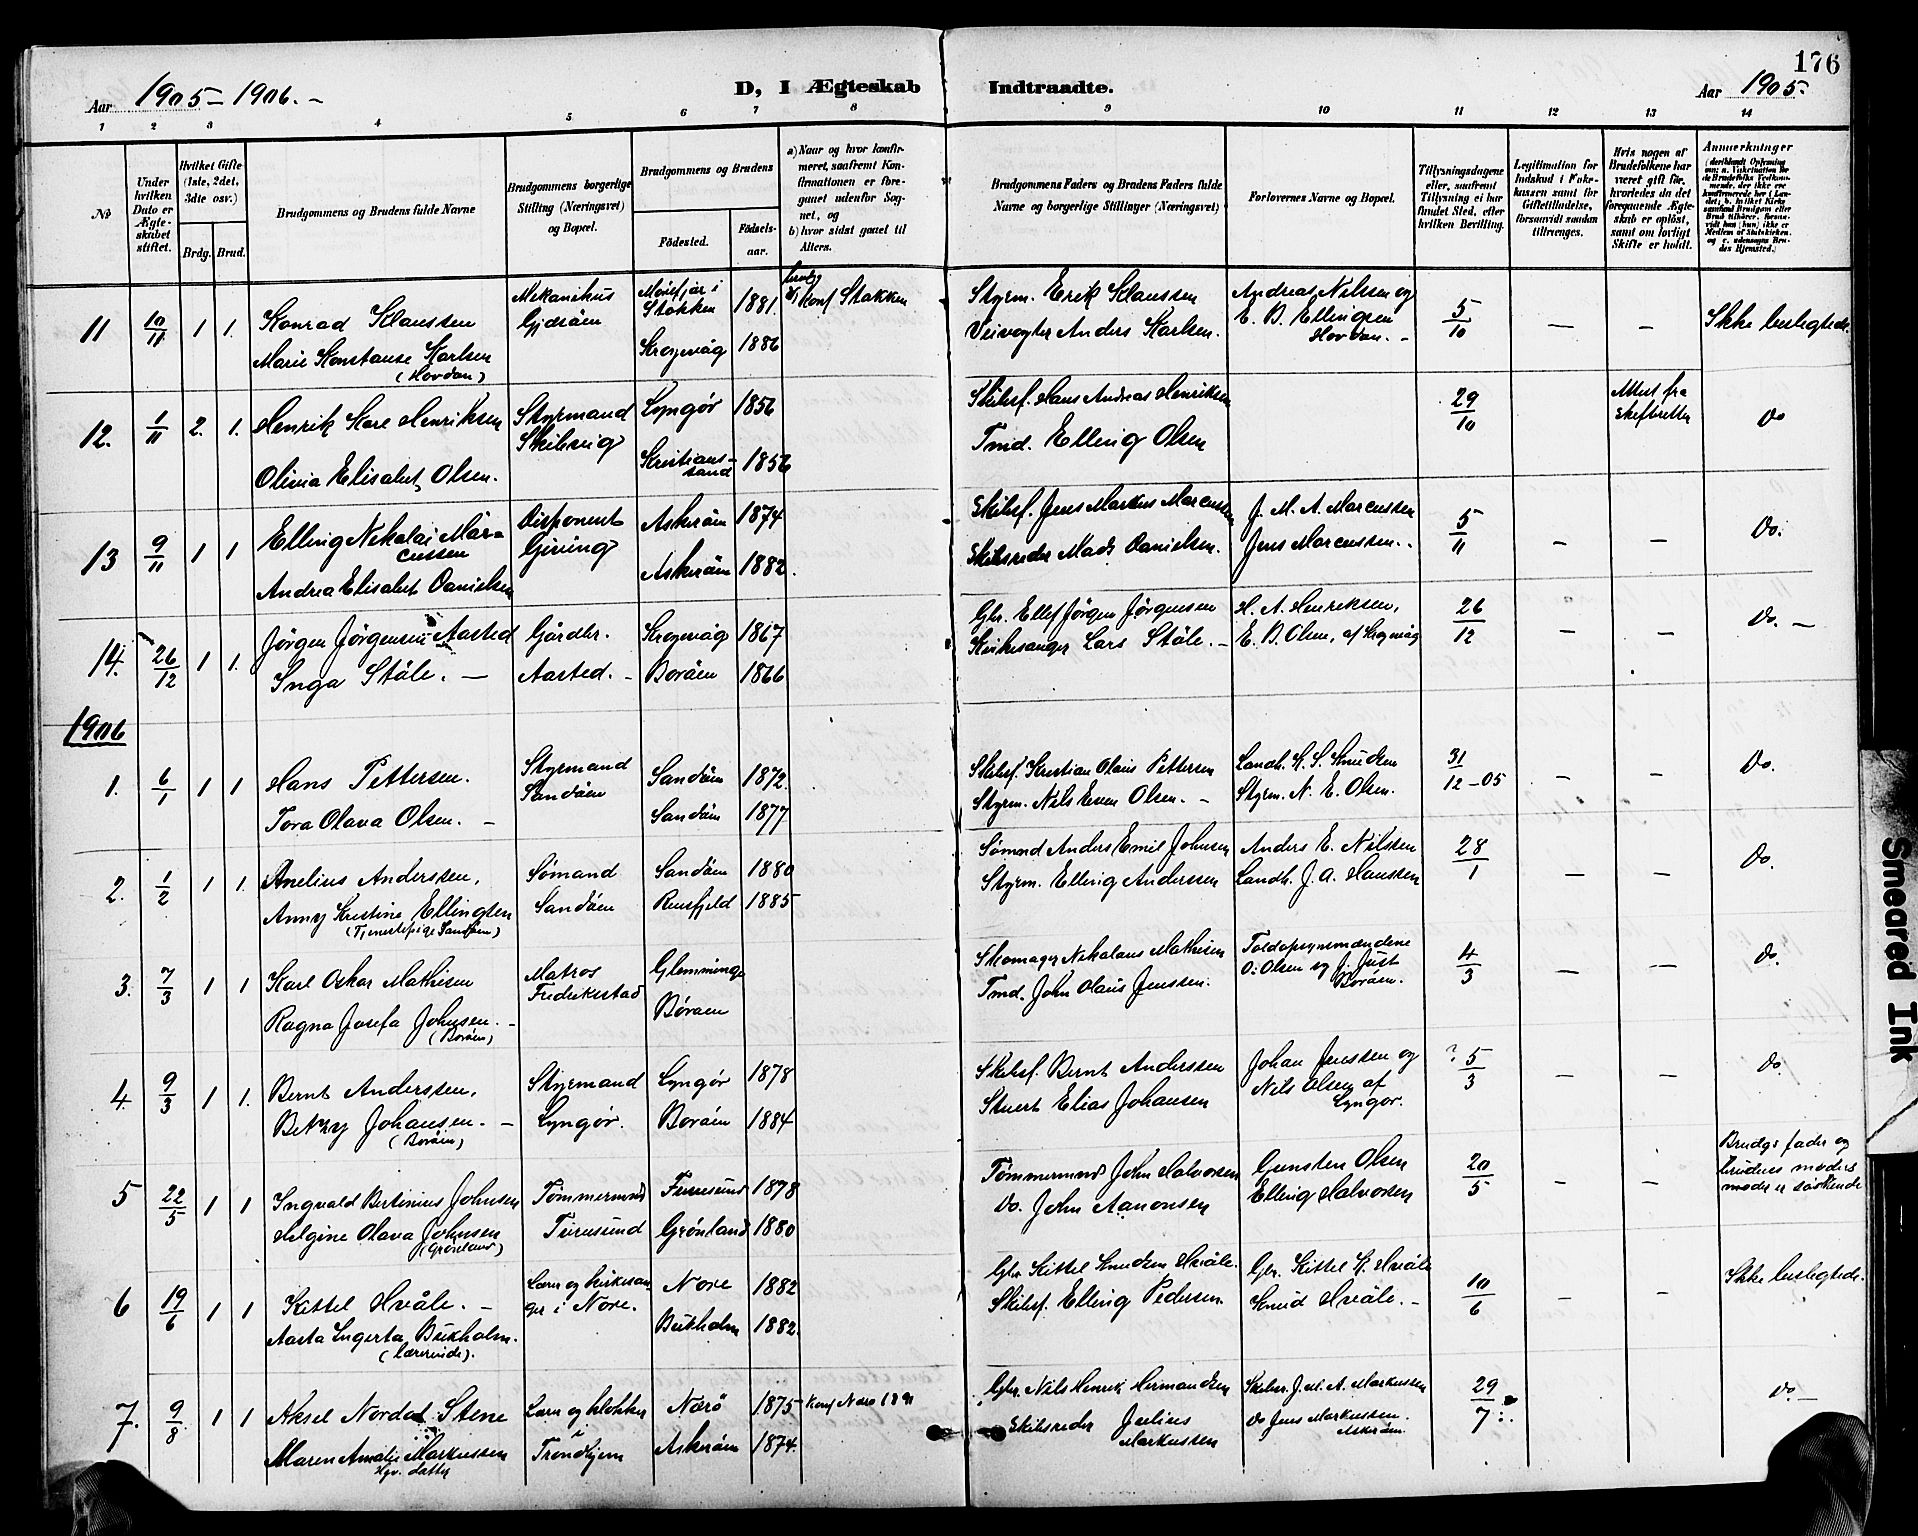 176
Aar 1905–1906.–
D, I Ægteskab Indtraadte.
Aar 1905.
1 2 3 4 5 6 7 8 9 10 11 12 13 14
№
Under hvilken Dato er Ægteskabet stiftet.
Hvilket Gifte (1ste, 2det, 3dte osv.)
Brdg. Brud.
Brudgommens og Brudens fulde Navne
Brudgommens borgerlige Stilling (Næringsvei) og Bopæl.
Brudgommens og Brudens
Fødested. Fødselsaar.
a) Naar og hvor konfirmeret, saafremt Konfirmationen er foregaaet udenfor Sognet, og
b) hvor sidst gaaet til Alters.
Brudgommens Faders og Brudens Faders fulde Navne og borgerlige Stillinger (Næringsvei)
Forlovernes Navne og Bopæl.
Tillysningsdagene eller, saafremt Tillysning ei har fundet Sted, efter hvilken Bevilling.
Legitimation for Indskud i Enkekassen samt for Giftetilladelse, forsaavidt saadan tiltrænges.
Hvis nogen af Brudefolkene har været gift før, hvorledes da det foregaaende Ægteskab er opløst, samt om lovligt Skifte er holdt.
Anmærkninger
11 10/11 1 1. Konrad Klaussen Mekanikus Gjdsöen Stokken 1881. Konf Stokken Styrm. Erik Klaussen Andreas Nilsen og E. B. Ellingsen Hovdan. – 5/10 — – Ikke beslegtede
Marie Konstanse Karlsen (Hovdan) Krogsvåg 1886 Veivogter Anders Karlsen.
12. 1/11 2. 1. Henrik Kare Henriksen Styrmand Skibsvig Lyngör 1856 Skibsf. Hans Andreas Henriksen 29/10 Attest fra Skifteretten Do
Olivia Elisabet Olsen. Kristianssand 1856 Tmd. Elling Olsen
13 9/11 1 1 Elling Nikolai Marcussen Disponent Giving Askeröen 1874 Skibsf. Jens Markus Marcussen J. M. A. Marcussen 5/11 – – Do.
Andrea Elisabet Danielsen Askeröen 1882. Skibsreder Mads Danielsen. Jens Marcussen.
14. 26/12 1 1. Jörgen Jörgensen Aasted Gårdbr. Krogsvåg 1867 Gbr. Ellef Jörgen Jörgensen H. A. Henriksen, 26/12 – – Do. –
Inga Ståle. – Aasted. – Boröen 1866 Kirkesanger Lars Ståle. – E. B. Olsen, af Krogsvåg
1906
1. 6/1 1 1 Hans Pettersen. Styrmand Sandöen Sandöen 1872. Skibsf. Kristian Olaus Pettersen Landh. K. S. Knudsen 31/12–05 – – Do.
Tora Olava Olsen. – Sandöen 1877 Styrm. Nils Even Olsen. – Styrm. N. E. Olsen.
2. 1/2 1 1. Anelius Anderssen, Sømand Sandöen 1880 Sømnd Anders Emil Johnsen Anders E. Nilssen 28/1 – – Do.
Anny Kristine Ellingsen (Tjenestepige Sandöen) Sandöen Rensfjeld 1885 Styrm. Elling Anderssen Landh. J. A. Hanssen
3. 7/3 1 1 Karl Oskar Mathisen Matros Glemminge Skomager Nikolaus Mathisen Toldopsynsmændene 4/3 – – Do.
Ragna Josefa Johnsen. – (Boröen) Fredrikstad Böröen Tmd. John Olaus Jenssen. O. Olsen og J. Just Boröen.
4. 9/3 1 1. Bernt Anderssen, Styrmand Lyngör 1878 Skibsf. Bernt Anderssen Johan Jenssen og ? 5/3 – – Do.
Betzy Johansen. – (Boröen) Lyngör. Boröen 1884 Stuert Elias Johansen Nils Olsen af Lyngör.
5 22/5 1 1 Ingvald Bertinius Johnsen Tömmermnd Furesund 1878 Tömmermnd John Halvorsen Gunsten Olsen 20/5 – – Brudgs fader og brudens moders moder er söskende
Helgine Olava Johnsen (Grönland) Furesund Grönland 1880 Do. John Aanonsen Elling Halvorsen
6 19/6 1 1 Kittel Hvåle. – Lærer og kirkesanger i Nore. Nore 1882 Gbr Kittel Knudsen Hvåle. Gbr. Kittel K. Hvåle 10/6 – – Ikke beslegtede.
Aasta Ingerta Bukholm. (lærerinde). Bukholm 1882. Skibsf. Elling Pedersen. Knud Hvåle. –
7. 9/8 1 1 Aksel Nordal Stene Lærer og klokker Nærö 1875 Konf Nærö 1891 Gbr. Nils Henrik Hermandsen Skibsr. J. M. A. Markussen 29/7 Do. –
Maren Amalie Markussen Hgv. datter i Trondhjem Askeröen 1874. Skibsreder Julius Markussen Do Jens Markussen. Askeröen.
Smeared Ink